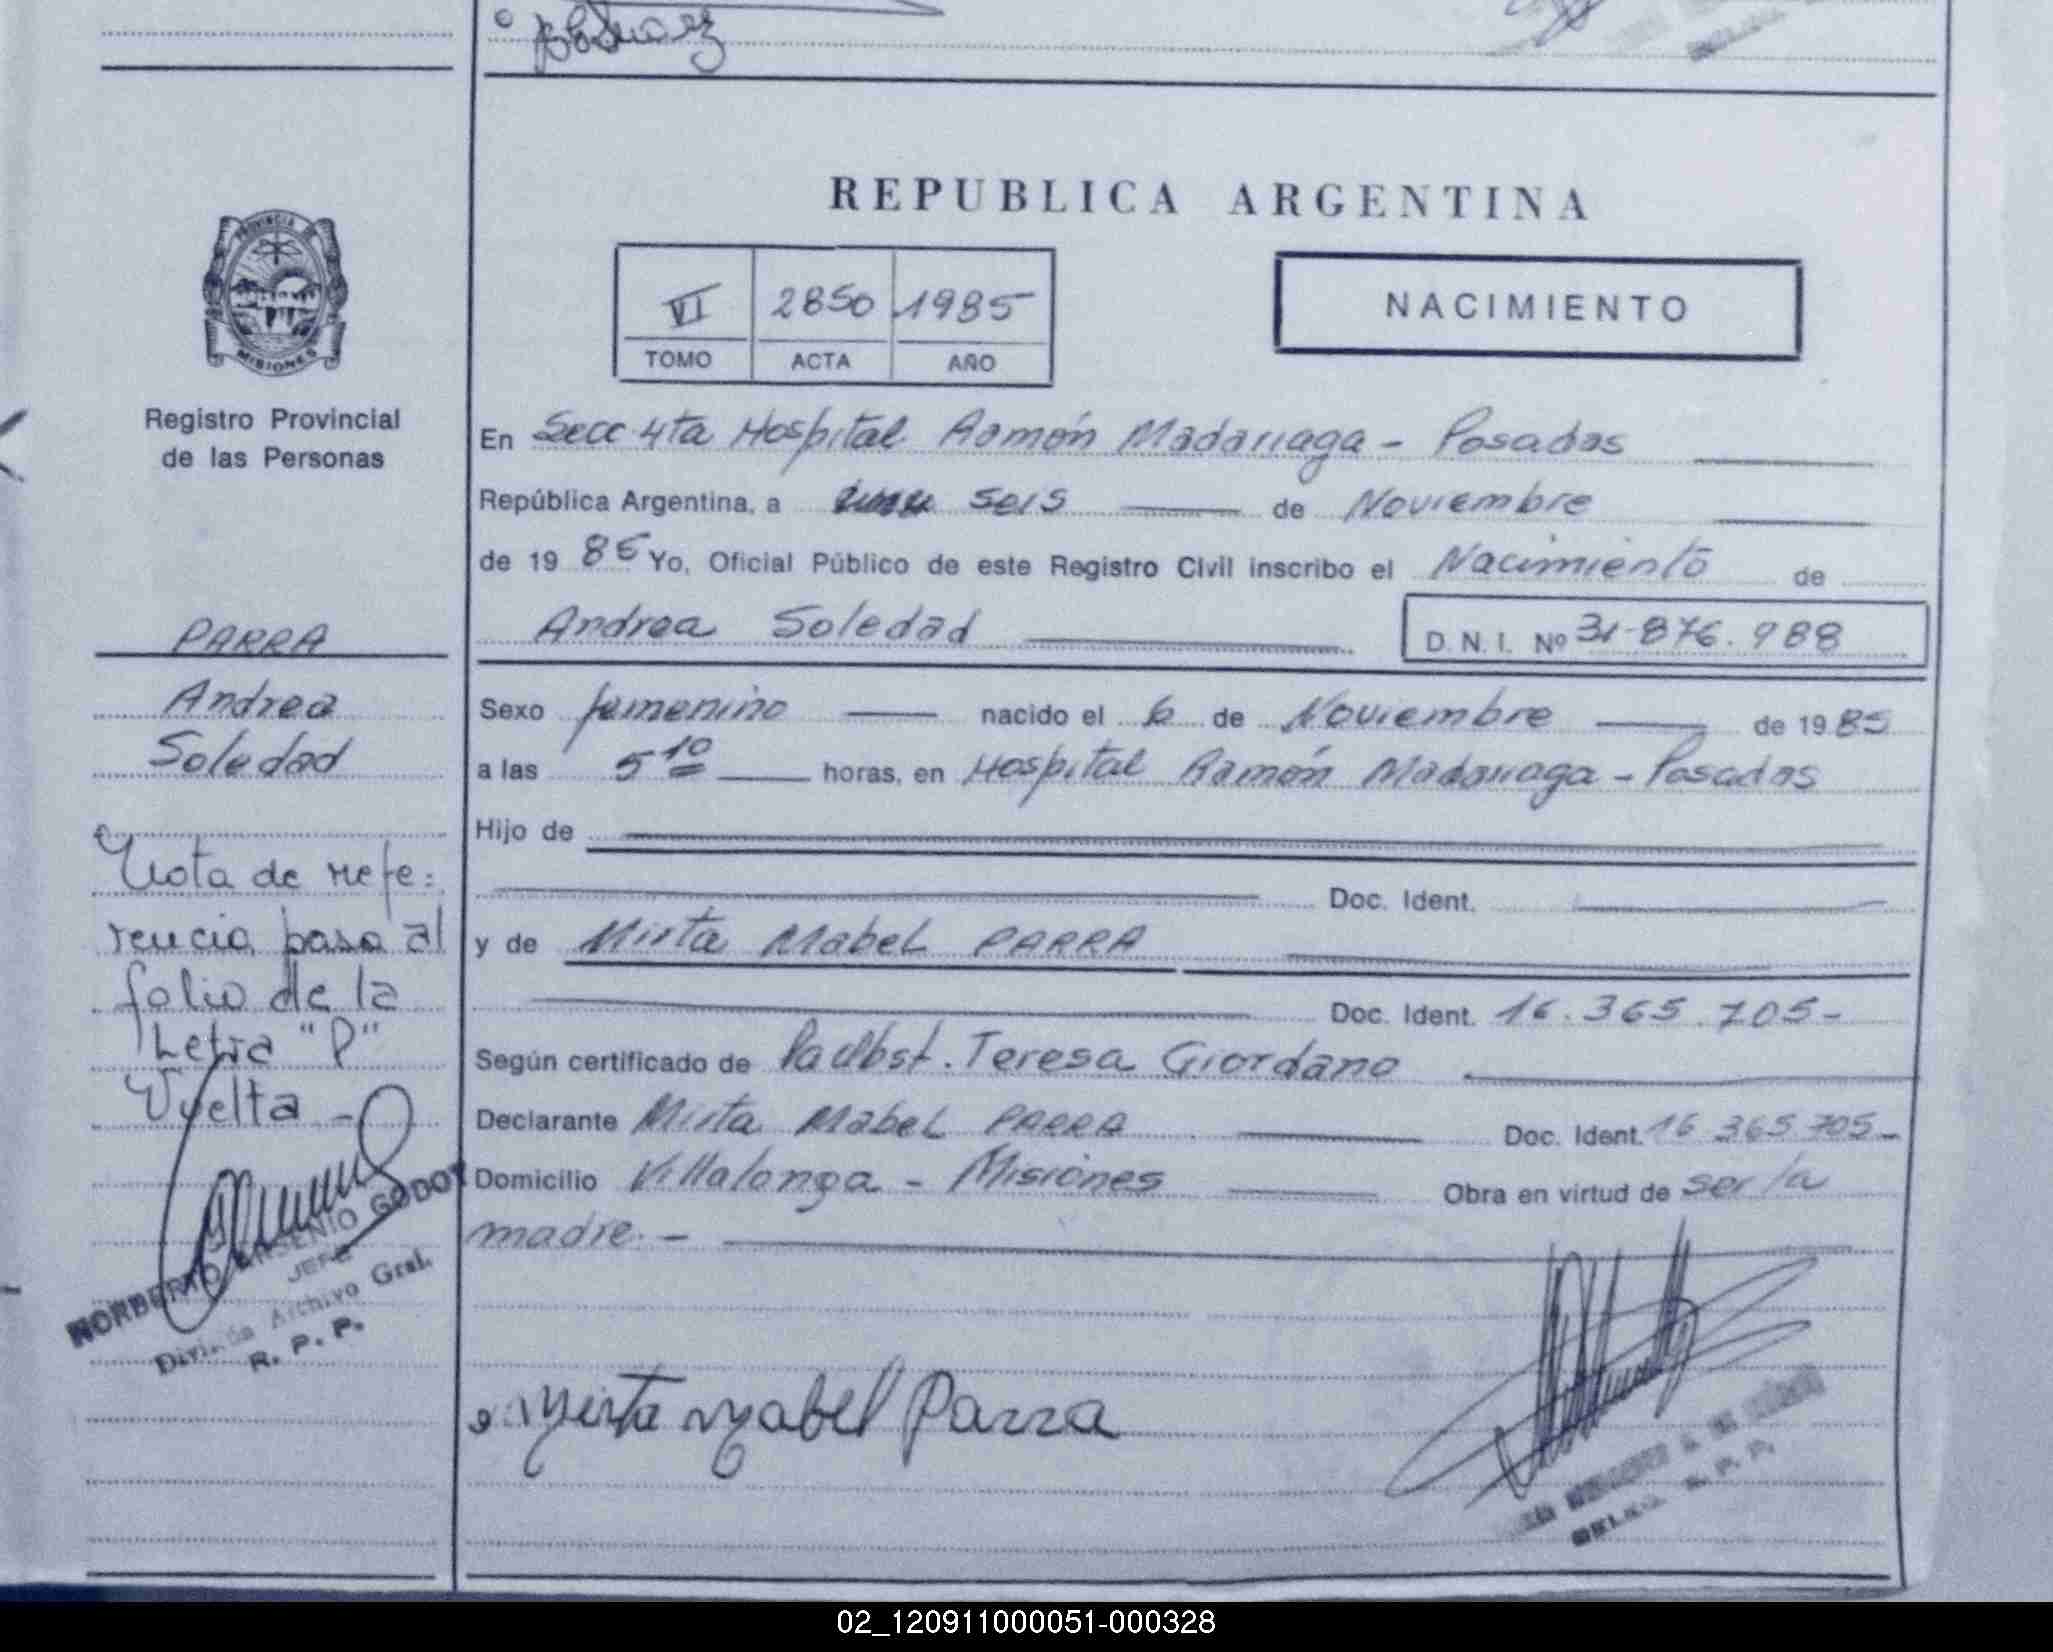 REPUBLICA ARGENTINA
PROVINCIA DE
MISIONES
Registro Provincial
de las Personas
VI 2850 1985
TOMO ACTA AÑO
NACIMIENTO
En Secc 4ta Hospital Ramón Madariaga - Posadas
República Argentina, a seis de Noviembre
de 19 85 Yo, Oficial Público de este Registro Civil inscribo el Nacimiento de
Andrea Soledad D. N. I. Nº 31.876.988
Sexo femenino nacido el 6 de Noviembre de 19 85
a las 5 10 horas, en Hospital Ramón Madariaga - Posadas
Hijo de
Doc. Ident.
y de Mirta Mabel PARRA
Doc. Ident. 16.365.705-
Según certificado de Teresa Giordano
Declarante Mirta Mabel PARRA Doc. Ident. 16 365 705-
Domicilio Villalonga - Misiones Obra en virtud de ser la
madre. -
Mirta Mabel Parra
R. P. P.
PARRA
Andrea
Soledad
Nota de refe=
rencia pasa al
folio de la
Letra "P"
Vuelta -
NORBERTO ARSENIO GODOY
JEFE
División Archivo Gral.
R. P. P.
02_120911000051-000328